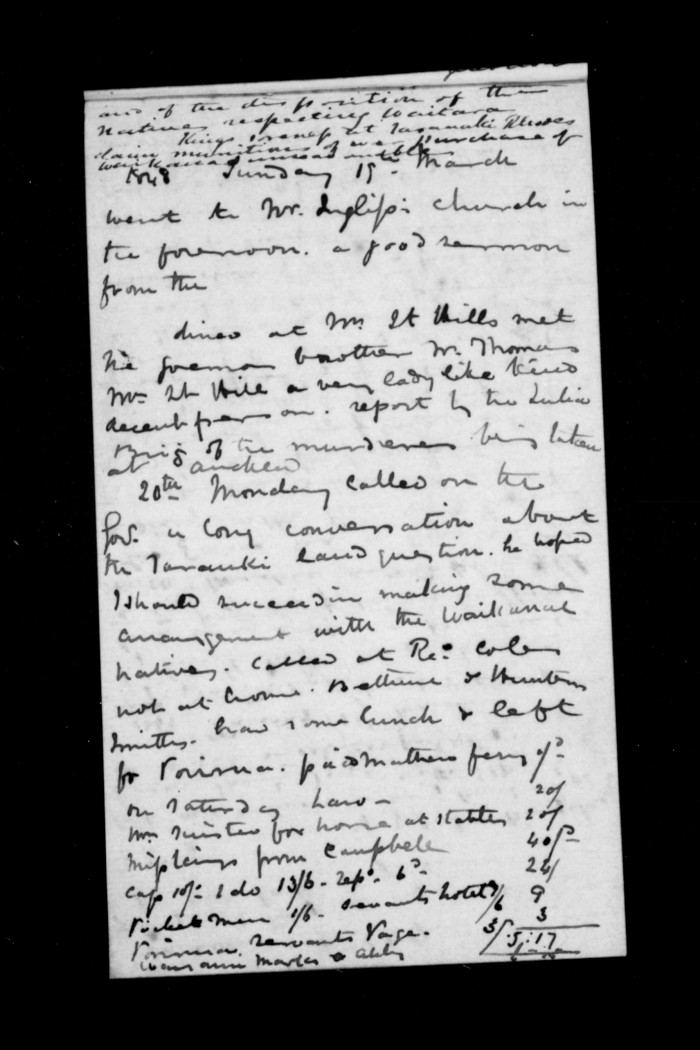 and of the disposition of the
Natives respecting Waitara
Kings at Taranaki Rhodes
munitions of war purchase of
1848 Sunday 19th March
went to Mr. Inglis's church in
the forenoon. a good sermon
from the
dined at Mr. St Hills met
the brother Mr. Thomas
Mrs. St Hill a very lady like kind
decent person. report by the
Brig of the murderers being taken
at
20th Monday called on the
Govr. a long conversation about
the Taranki land question. he hoped
I should succeed in making some
arrangement with the Waikanae
natives. Called at Revd. Coles
not at home. Bethune & Hunters
Smiths. had some lunch & left
for Porirua. paid Mathew
on Saturday 20/
Mr. for horse at Stables 20/
from Campbell 40/
Cap 10/- 1 do 13/6 - 6d- 24/
men 1/6 - servants hotel 9
Porirua. servants 3/ 3
5:17